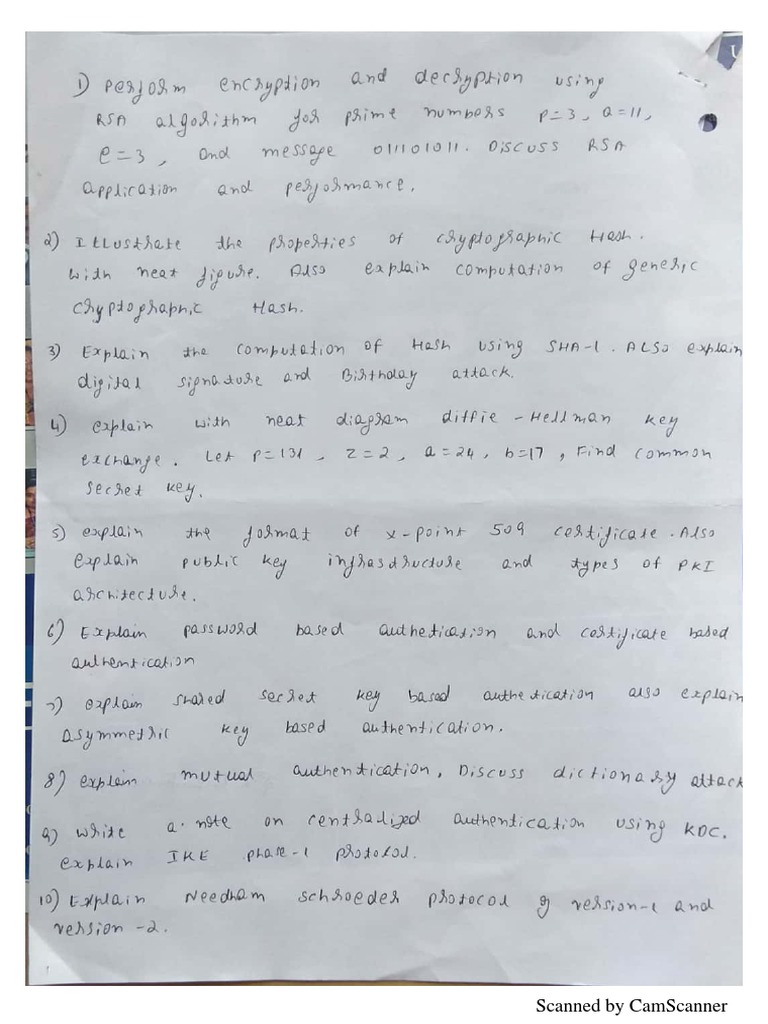 1) Perform encryption and decryption using
RSA algorithm for prime numbers P=3, Q=11,
e=3, and message 011101011. Discuss RSA
application and performance.
2) Illustrate the properties of cryptographic Hash.
with neat figure. Also explain computation of generic
cryptographic Hash.
3) Explain the computation of Hash using SHA-1. Also explain
digital signature and Birthday attack.
4) explain with neat diagram diffie - Hellman key
exchange. Let P=131, Z=2, a=24, b=17, Find common
secret key.
5) explain the format of x-point 509 certificate. Also
explain public key infrastructure and types of PKI
architecture.
6) Explain password based authetication and certificate based
authentication
7) explain shared secret key based authetication also explain
asymmetric key based authentication.
8) explain mutual authentication, Discuss dictionary attack
9) write a note on centralized authentication using KDC.
explain IKE phase-1 protocol.
10) Explain Needham schroeder protocol version-1 and
version -2.
Scanned by CamScanner